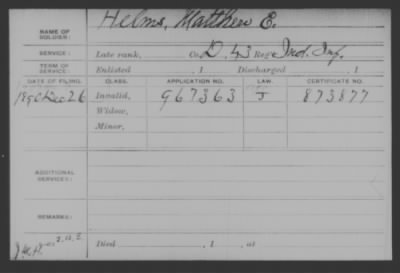 Helms, Matthew E.
NAME OF SOLDIER:
SERVICE: Late rank, Co. D, 43 Reg't Ind. Inf.
TERM OF SERVICE: Enlisted , 1 Discharged , 1
DATE OF FILING. CLASS. APPLICATION NO. LAW. CERTIFICATE NO.
1890 Dec 26 Invalid, 967363 J 873877
Widow,
Minor,
ADDITIONAL SERVICES:
REMARKS:
Died , 1 , at